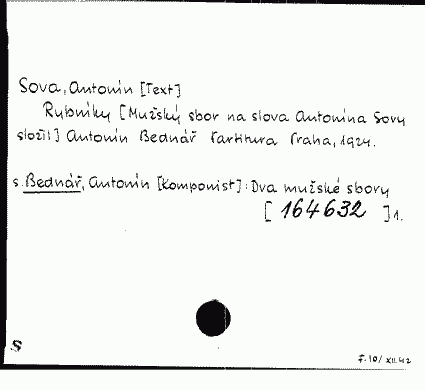 Sova, Antonín [Text]
Rybníky [Mužský sbor na slova Antonína Sovy
složil] Antonín Bednář Partitura Praha, 1924.
s. Bednář, Antonín [Komponist]: Dva mužské sbory
[ 164632 ] 1.
S
F.10/ XII.42